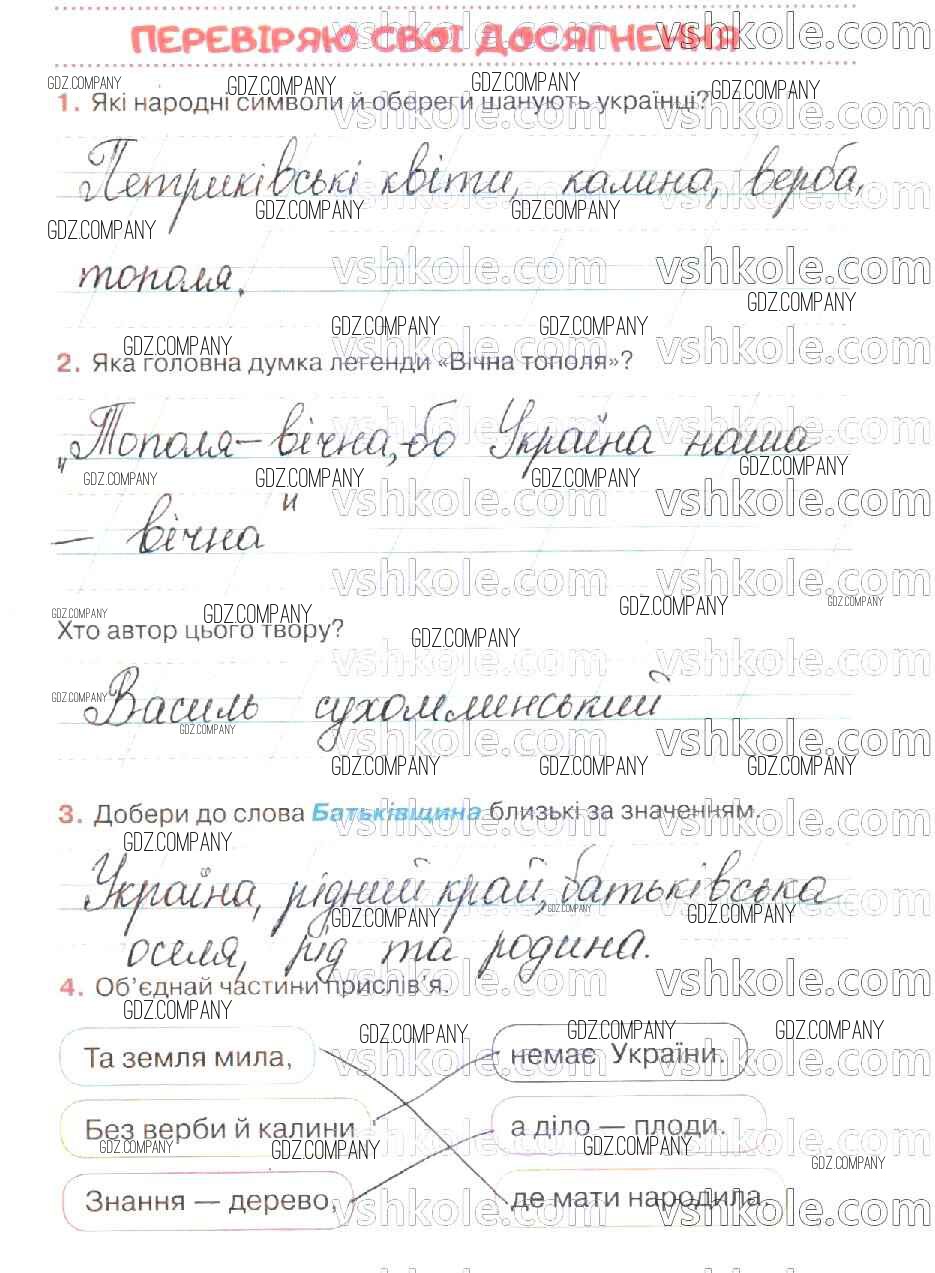 ПЕРЕВІРЯЮ СВОЇ ДОСЯГНЕННЯ
1. Які народні символи й обереги шанують українці?
Петриківські квіти, калина, верба,
тополя.
2. Яка головна думка легенди «Вічна тополя»?
„Тополя – вічна, бо Україна наша
– вічна"
Хто автор цього твору?
Василь сухомлинський
3. Добери до слова Батьківщина близькі за значенням.
Україна, рідний край, батьківська
оселя, рід та родина.
4. Об'єднай частини прислів'я.
Та земля мила, немає України.
Без верби й калини а діло — плоди.
Знання — дерево, де мати народила.
vshkole.com
GDZ.COMPANY